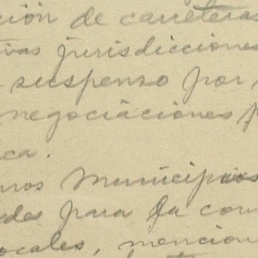 ción de carreteras
tivas jurisdicciones
suspenso por
negociaciones
ca.
nos Municipios
des para la con
locales, mencion